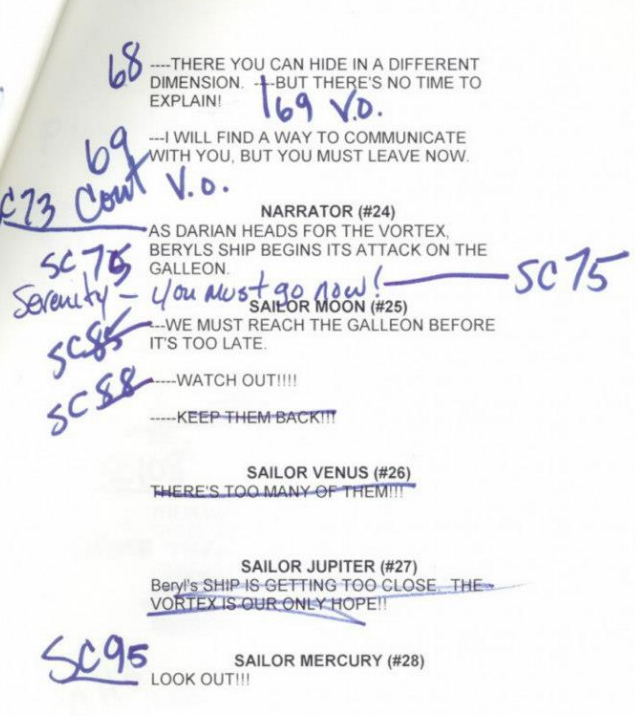 68 ----THERE YOU CAN HIDE IN A DIFFERENT
DIMENSION. ----BUT THERE'S NO TIME TO
EXPLAIN! 169 V.O.
69 ---I WILL FIND A WAY TO COMMUNICATE
WITH YOU, BUT YOU MUST LEAVE NOW.
C73 Cont V.O.
NARRATOR (#24)
AS DARIAN HEADS FOR THE VORTEX,
BERYLS SHIP BEGINS ITS ATTACK ON THE
SC 75 GALLEON.
Serenity – You must go now! SC75
SAILOR MOON (#25)
SC85 ---WE MUST REACH THE GALLEON BEFORE
IT'S TOO LATE.
SC88 -----WATCH OUT!!!!
-----KEEP THEM BACK!!!
SAILOR VENUS (#26)
THERE'S TOO MANY OF THEM!!!
SAILOR JUPITER (#27)
Beryl's SHIP IS GETTING TOO CLOSE. THE
VORTEX IS OUR ONLY HOPE!!
SC95 SAILOR MERCURY (#28)
LOOK OUT!!!